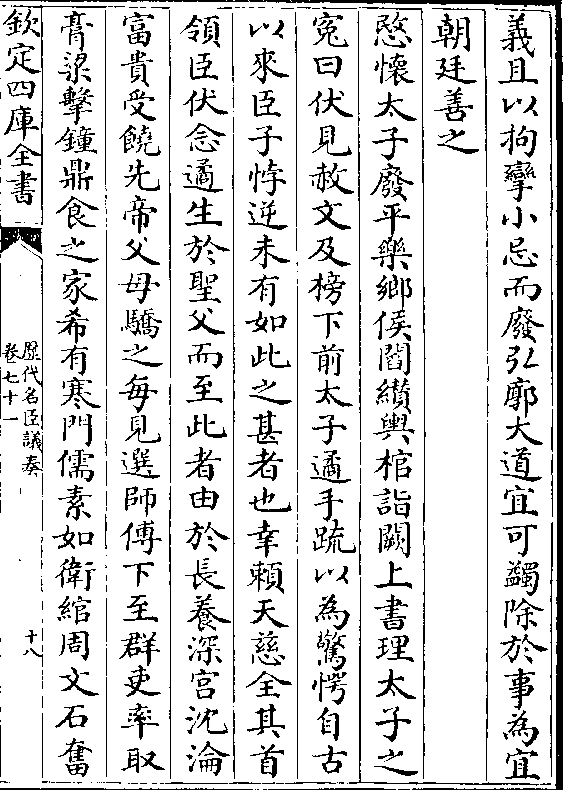 義且以拘攣小忌而廢弘廓大道宜可蠲除於事為宜
朝廷善之
愍懷太子廢平樂鄉侯閻纘輿棺詣闕上書理太子之
冤曰伏見赦文及榜下前太子遹手疏以為驚愕自古
以來臣子悖逆未有如此之甚者也幸賴天慈全其首
領臣伏念遹生於聖父而至此者由於長養深宮沈淪
富貴受饒先帝父母驕之每見選師傅下至群吏率取
膏粱擊鐘鼎食之家希有寒門儒素如衛綰周文石奮
欽定四庫全書
歷代名臣議奏
卷七十一
十八